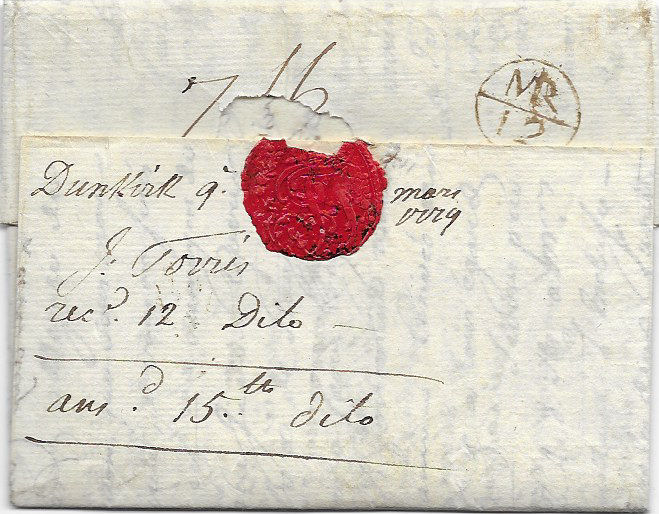 MR
12
Dunkirk 9.
mars
1779
J: Torris
recd. 12 Dito
ansd. 15.th dito